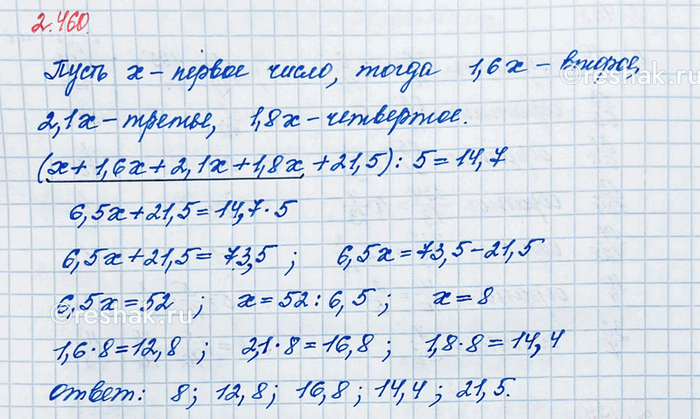 2.460.
Пусть x – первое число, тогда 1,6x – второе,
2,1x – третье, 1,8x – четвертое.
(x + 1,6x + 2,1x + 1,8x + 21,5) : 5 = 14,7
6,5x + 21,5 = 14,7 · 5
6,5x + 21,5 = 73,5 ; 6,5x = 73,5 – 21,5
6,5x = 52 ; x = 52 : 6,5 ; x = 8
1,6 · 8 = 12,8 ; 2,1 · 8 = 16,8 ; 1,8 · 8 = 14,4
Ответ: 8; 12,8; 16,8; 14,4; 21,5.
reshak.ru
reshak.ru